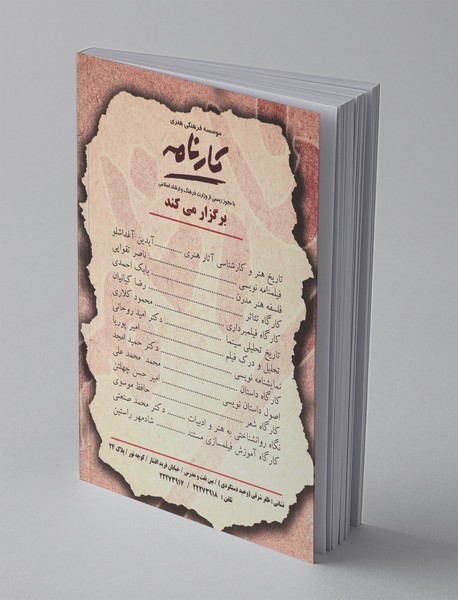 موسسه فرهنگی هنری
کارنامه
با مجوز رسمی از وزارت فرهنگ و ارشاد اسلامی
برگزار می کند
تاریخ هنر و کارشناسی آثار هنری ........... آیدین آغداشلو
فیلمنامه نویسی ........... ناصر تقوایی
فلسفه هنر مدرن ........... بابک احمدی
کارگاه تئاتر ........... رضا کیانیان
کارگاه فیلمبرداری ........... محمود کلاری
تاریخ تحلیلی سینما ........... دکتر امید روحانی
تحلیل و درک فیلم ........... امیر پوریا
نمایشنامه نویسی ........... دکتر حمید امجد
کارگاه داستان ........... محمد محمد علی
اصول داستان نویسی ........... امیر حسن چهلتن
کارگاه شعر ........... حافظ موسوی
نگاه روانشناختی به هنر و ادبیات ........... دکتر محمد صنعتی
کارگاه آموزش فیلمسازی مستند ........... شادمهر راستین
نشانی : ظفر شرقی (وحید دستگردی) / بین نفت و مدرس / خیابان فرید افشار / کوچه نور / پلاک ۲۴
تلفن : ۲۲۲۷۳۹۱۸ / ۲۲۲۷۳۹۱۷